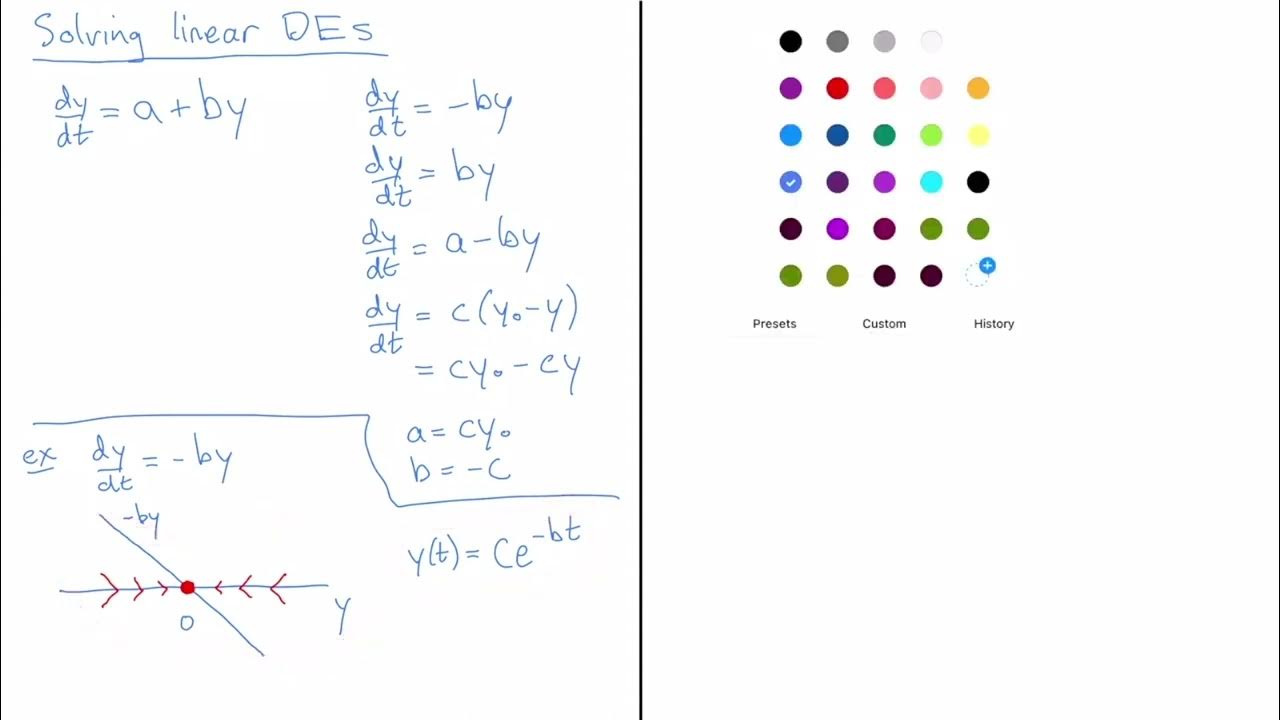 Solving linear DEs
dy/dt = a + by
dy/dt = -by
dy/dt = by
dy/dt = a - by
dy/dt = c(y₀ - y)
= cy₀ - cy
a = cy₀
b = -c
ex dy/dt = -by
-by
0
y
y(t) = Ce^{-bt}
Presets Custom History